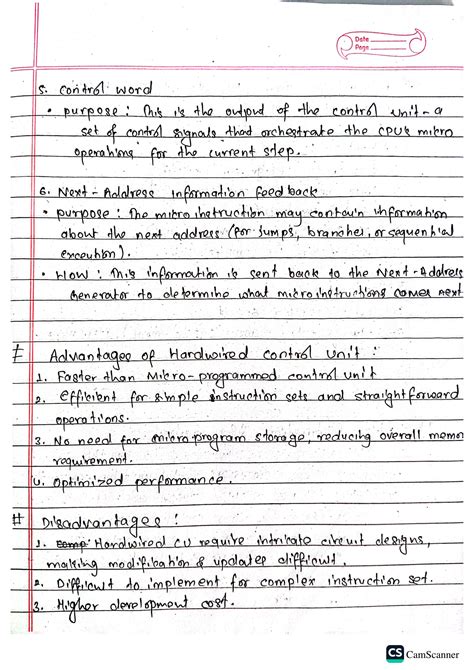 Date
Page
5. Control word
• purpose : This is the output of the control unit - a
set of control signals that orchestrate the CPU's micro
operations for the current step.
6. Next - Address Information feedback
• purpose : The microinstruction may contain information
about the next address (for jumps, branches, or sequential
execution).
• How : This information is sent back to the Next-Address
Generator to determine what microinstructions comes next
# Advantages of Hardwired control unit :
1. Faster than Micro-programmed control unit
2. Efficient for simple instruction sets and straightforward
operations.
3. No need for microprogram storage, reducing overall memo
requirement.
4. Optimized performance.
# Disadvantages :
1. Hardwired CU require intricate circuit designs,
making modification & updates difficult.
2. Difficult to implement for complex instruction set.
3. Higher development cost.
CS CamScanner